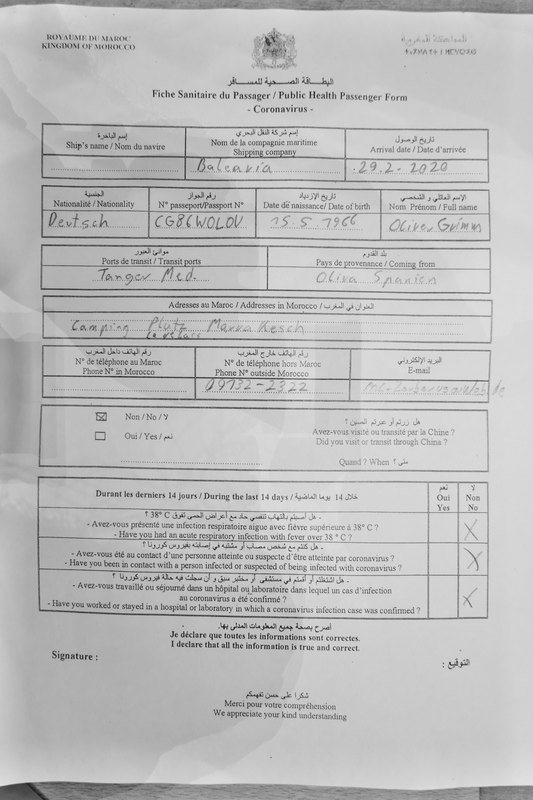 ROYAUME DU MAROC
KINGDOM OF MOROCCO
المملكة المغربية
ⵜⴰⴳⵍⴷⵉⵜ ⵏ ⵍⵎⵖⵔⵉⴱ
البطاقة الصحية للمسافر
Fiche Sanitaire du Passager / Public Health Passenger Form
- Coronavirus -
إسم الباخرة
Ship's name / Nom du navire
إسم شركة النقل البحري
Nom de la compagnie maritime
Shipping company
Balearia
تاريخ الوصول
Arrival date / Date d'arrivée
29.2-2020
الجنسية
Nationalité / Nationality
Deutsch
رقم الجواز
N° passeport/Passport N°
CG86W0L0V
تاريخ الإزدياد
Date de naissance/ Date of birth
15.5.1966
الإسم العائلي و الشخصي
Nom Prénom / Full name
Oliver Grimm
موانئ العبور
Ports de transit / Transit ports
Tanger Med.
بلد القدوم
Pays de provenance / Coming from
Oliva Spanien
Adresses au Maroc / Addresses in Morocco / العنوان في المغرب
Camping Platz Marrakesch
le relais
رقم الهاتف داخل المغرب
N° de téléphone au Maroc
Phone N° in Morocco
رقم الهاتف خارج المغرب
N° de téléphone hors Maroc
Phone N° outside Morocco
09732-2322
البريد الإلكتروني
E-mail
Non / No / لا
Oui / Yes / نعم
هل زرتم أو عبرتم الصين ؟
Avez-vous visité ou transité par la Chine ?
Did you visit or transit through China ?
Quand ? When ? متى ؟
Durant les derniers 14 jours / During the last 14 days / خلال 14 يوما الماضية ؟
نعم
Oui
Yes
لا
Non
No
- هل أصبتم بالتهاب تنفسي حاد مع أعراض الحمى تفوق 38° C ؟
- Avez-vous présenté une infection respiratoire aigue avec fièvre supérieure à 38° C ?
- Have you had an acute respiratory infection with fever over 38 ° C ?
X
- هل كنتم مع شخص مصاب أو مشتبه في إصابته بفيروس كورونا ؟
- Avez-vous été au contact d'une personne atteinte ou suspecte d'être atteinte par coronavirus ?
- Have you been in contact with a person infected or suspected of being infected with coronavirus ?
X
- هل اشتغلتم أو أقمتم في مستشفى أو مختبر سبق و أن سجلت فيه حالة فيروس كورونا ؟
- Avez-vous travaillé ou séjourné dans un hôpital ou laboratoire dans lequel un cas d'infection
au coronavirus a été confirmé ?
- Have you worked or stayed in a hospital or laboratory in which a coronavirus infection case was confirmed ?
X
أصرح بصحة جميع المعلومات المدلى بها.
Je déclare que toutes les informations sont correctes.
I declare that all the information is true and correct.
Signature :
التوقيع :
شكرا على حسن تفهمكم
Merci pour votre compréhension
We appreciate your kind understanding